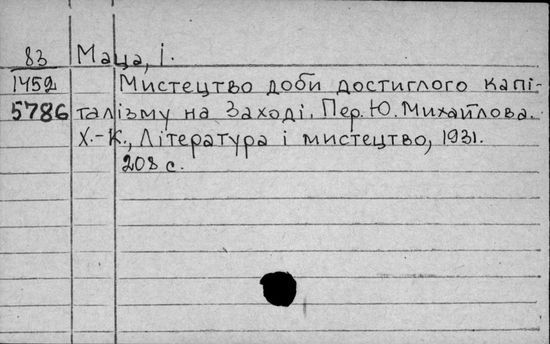 83 Маца, І.
1452 Мистецтво доби достиглого капі-
5786 талізму на Заході. Пер. Ю. Михайлова.
Х.-К., Література і мистецтво, 1931.
208 с.